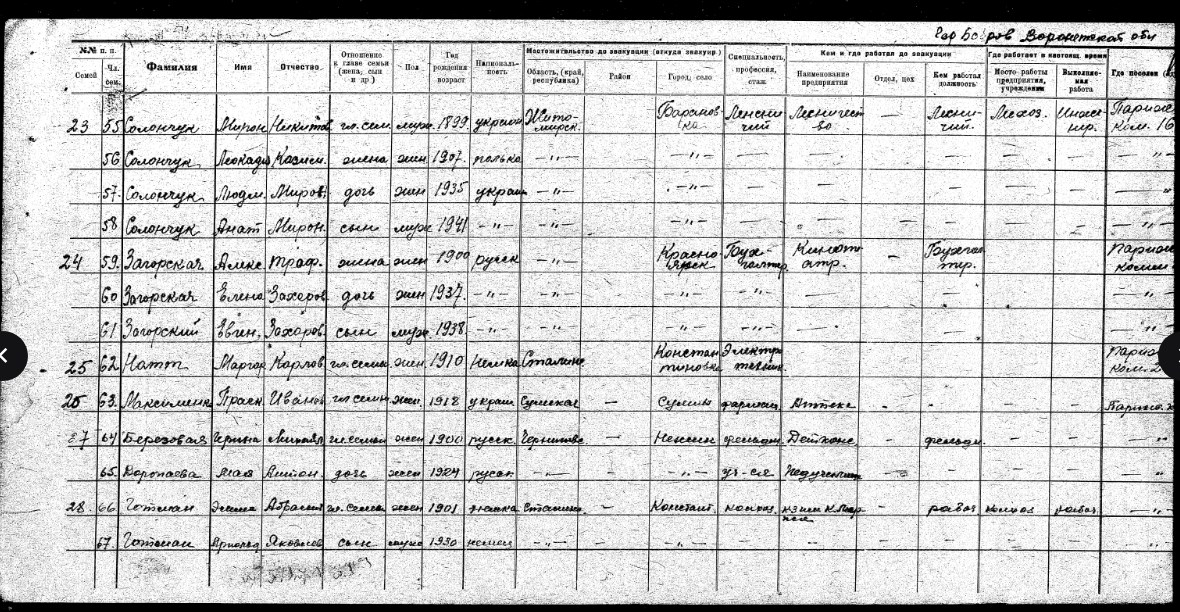 гор Бобров Воронежской обл
№№ п. п. Семей Чл. сем. Фамилия Имя Отчество Отношение к главе семьи (жена, сын и др) Пол Год рождения возраст Националь-ность Местожительство до эвакуации (откуда эвакуир.) Область, (край, республика) Район Город, село Специальность, профессия, стаж Кем и где работал до эвакуации Наименование предприятия Отдел, цех Кем работал должность Где работает в настоящ. время Место-работы предприятия, учреждения Выполняе-мая работа Где поселен
23 55 Солончук Мирон Никитов гл. сем. муж 1899 украин Жито-мирск. Баранов ка Леснич Лесничест во — Лесни-чий. Лесхоз. Инже-нир. Париж ком. 16
56 Солончук Леокади Казим. жена жен 1907. полька —"— —"— — — — — — — "
57. Солончук Людм. Миров. дочь жен 1935 украин —"— —"— — — — — — — "
58 Солончук Анат Мирон. сын муж 1941 —"— —"— —"— — — — — — — "
24 59. Загорская Алекс Траф. жена жен 1900 русск —"— Красно-Бух-Кинот — Бухгал тир. Париж комм.
60 Загорская Елена Захаров дочь жен 1937. —"— —"— —"— — — — — — "
61 Загорский Евген. Захаров. сын муж. 1938. —"— —"— —"— — — — — — "
25 62 Натт Маргар Карлов гл. семьи жен 1910 Немка Сталинс Констан тиновка Электр техник. — — — — — Париж ком. 2
26 63. Максименк Праск Иванов гл. семьи жен. 1918 украин Сумская Сумы фармац. Аптека - - Париж. к
27 64 Березовая Ирина Михайл гл. семьи жен 1900 русск. Чернигове. — Нежин фельдш. Детконс. — фельдш. — — "
65. Коропаева Мая Антон. дочь жен 1924 русск —"— —"— Педучилищ — — — "
28. 66 Готман Абрамов гл. семьи жен 1901 немка Сталинс — Констант. колхоз. К. Марк са — рабоч колхоз рабоч. —"—
67. Готман Арнольд Яковлев сын муж 1930 немец —"— — " — — — — — — — "